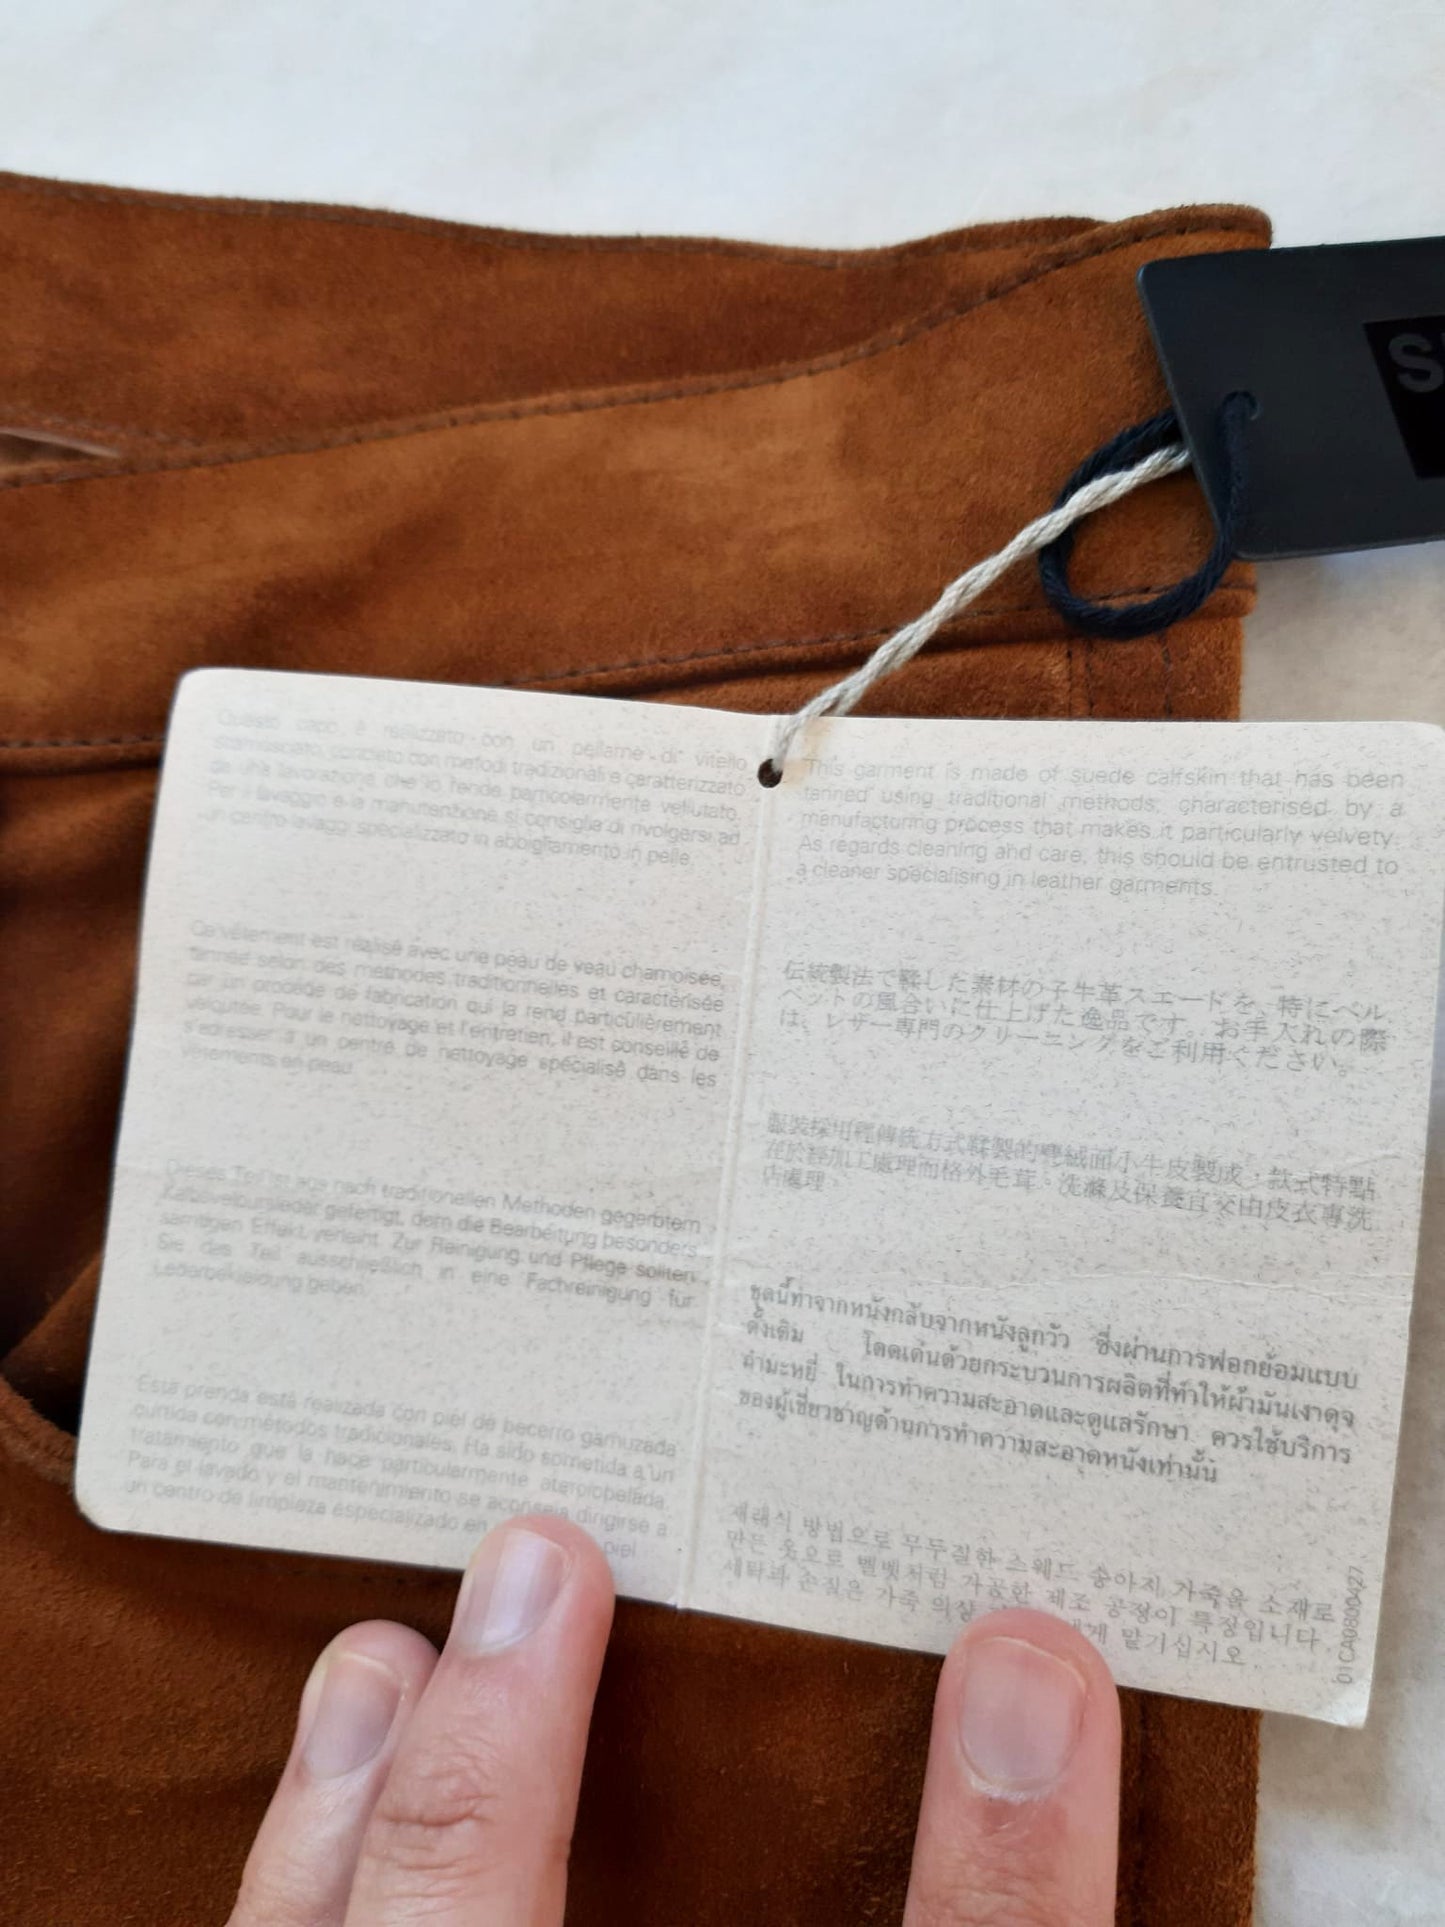 Questo capo è realizzato con un pellame di vitello
scamosciato, conciato con metodi tradizionali e caratterizzato
da una lavorazione che lo rende particolarmente vellutato.
Per il lavaggio e la manutenzione si consiglia di rivolgersi ad
un centro lavaggi specializzato in abbigliamento in pelle.
Ce vêtement est réalisé avec une peau de veau chamoisée,
tannée selon des méthodes traditionnelles et caractérisée
par un procédé de fabrication qui la rend particulièrement
veloutée. Pour le nettoyage et l'entretien, il est conseillé de
s'adresser à un centre de nettoyage spécialisé dans les
vêtements en peau.
Dieses Teil ist aus nach traditionellen Methoden gegerbtem
Kalbsveloursleder gefertigt, dem die Bearbeitung besonders
samtigen Effekt verleiht. Zur Reinigung und Pflege sollten
Sie das Teil ausschließlich in eine Fachreinigung für
Lederbekleidung geben.
Esta prenda está realizada con piel de becerro gamuzada
curtida con métodos tradicionales. Ha sido sometida a un
tratamiento que la hace particularmente aterciopelada.
Para el lavado y el mantenimiento se aconseja dirigirse a
un centro de limpieza especializado en piel
This garment is made of suede calfskin that has been
tanned using traditional methods, characterised by a
manufacturing process that makes it particularly velvety.
As regards cleaning and care, this should be entrusted to
a cleaner specialising in leather garments.
伝統製法で鞣した素材の子牛革スエードを、特にベル
ベットの風合いに仕上げた逸品です。お手入れの際
は、レザー専門のクリーニングをご利用ください。
服裝採用經傳統方式鞣製的麂絨面小牛皮製成，款式特點
在於經加工處理而格外毛茸。洗滌及保養宜交由皮衣專洗
店處理。
ชุดนี้ทำจากหนังกลับจากหนังลูกวัว ซึ่งผ่านการฟอกย้อมแบบ
ดั้งเดิม โดดเด่นด้วยกระบวนการผลิตที่ทำให้ผ้ามันเงาดุจ
กำมะหยี่ ในการทำความสะอาดและดูแลรักษา ควรใช้บริการ
ของผู้เชี่ยวชาญด้านการทำความสะอาดหนังเท่านั้น
재래식 방법으로 무두질한 스웨드 송아지 가죽을 소재로
만든 옷으로 벨벳처럼 가공한 제조 공정이 특징입니다.
세탁과 손질은 가죽 의상 맡기십시오.
01CA0800427
S